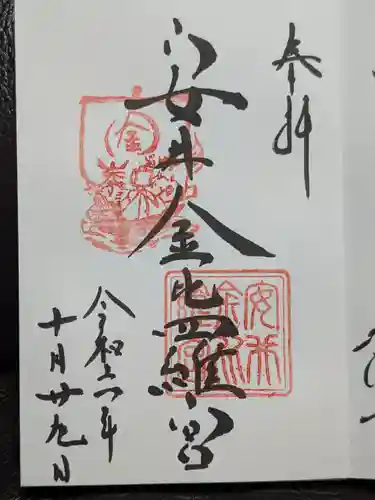 奉拝
安井金比羅宮
令和六年
十月廿九日